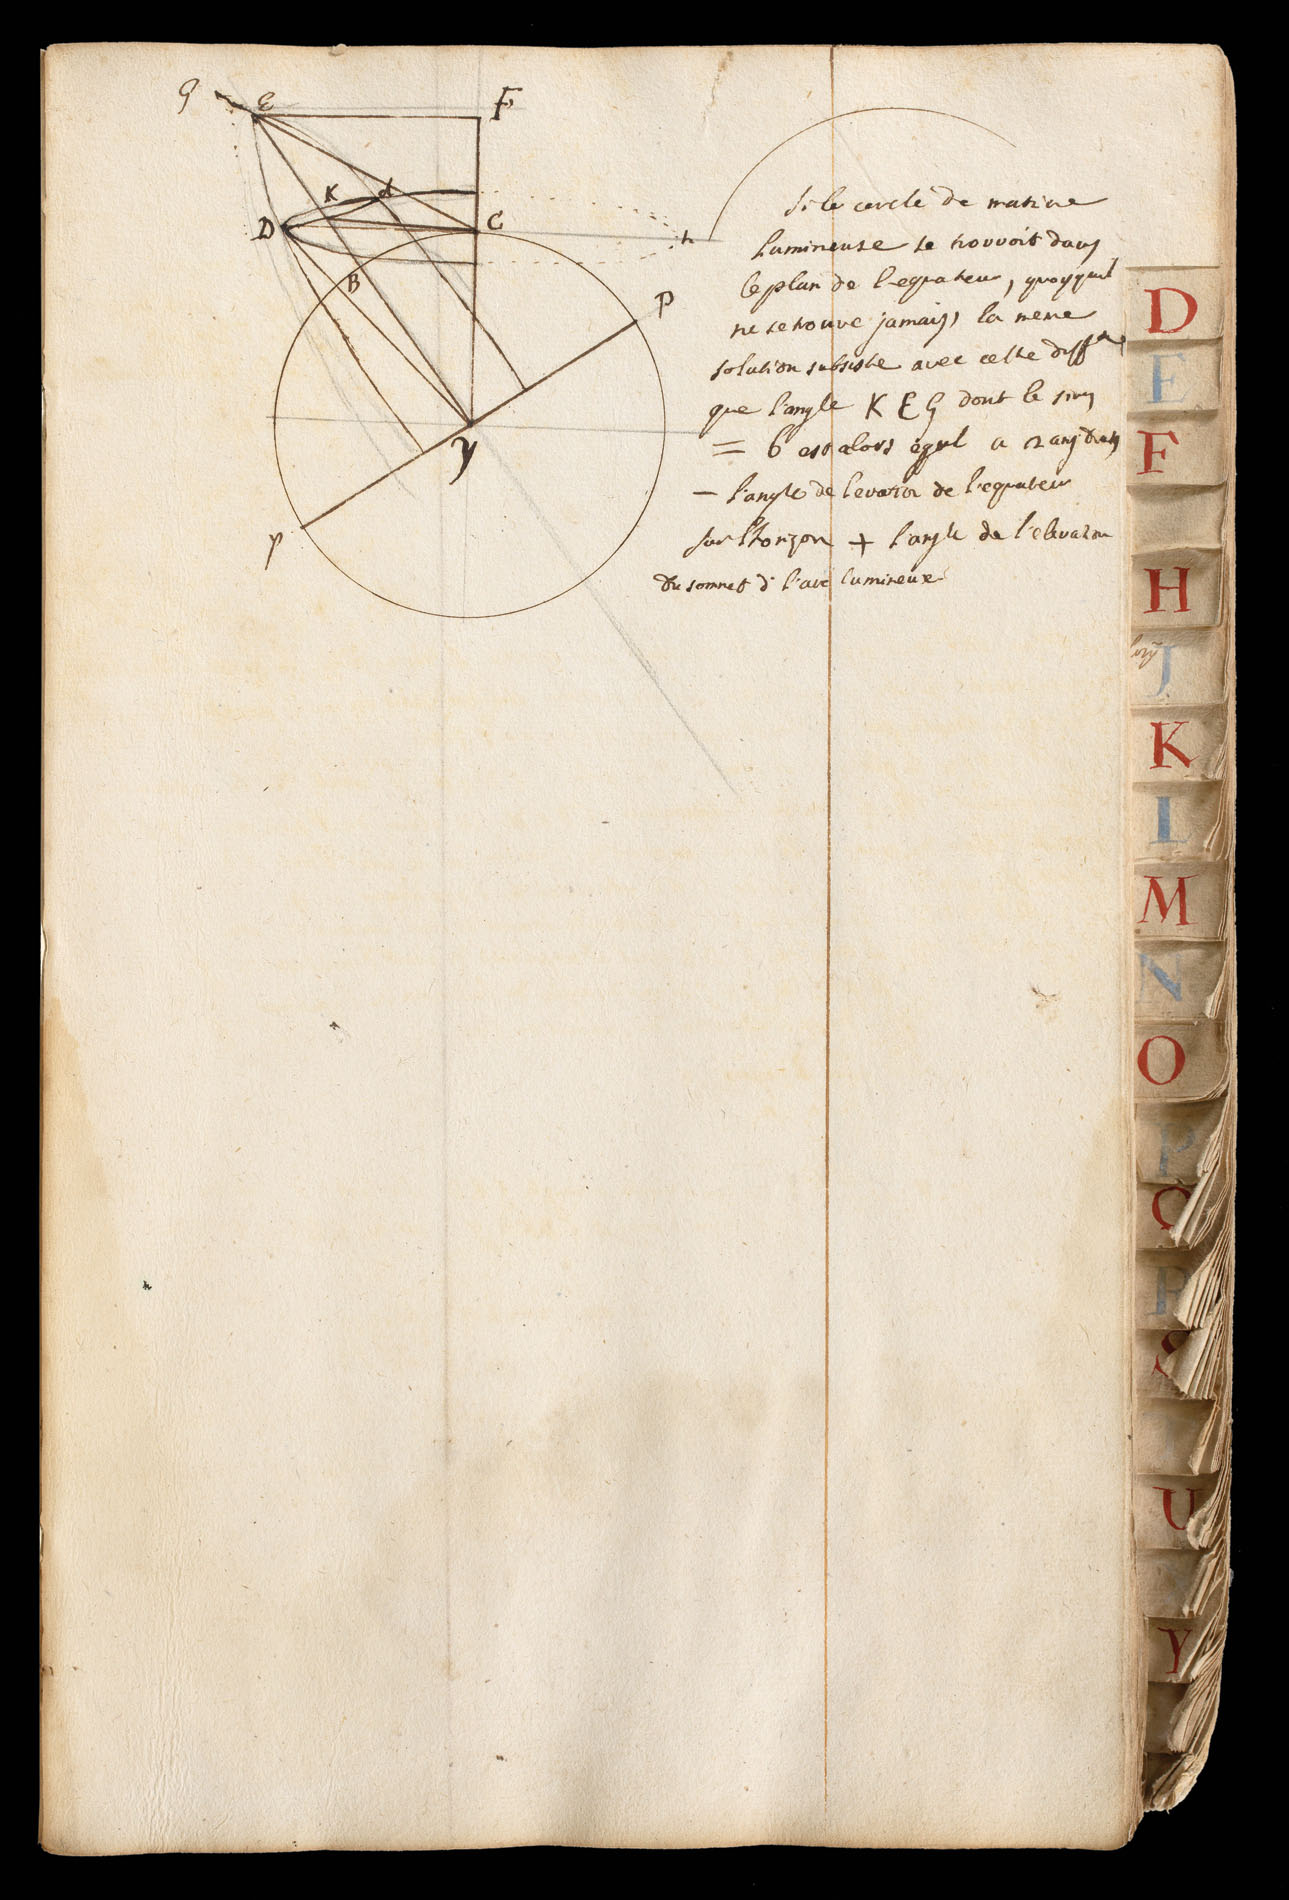 G E F
K d
D C h
B
P
Y
p
Si le cercle de matiere
lumineuse se trouvoit dans
le plan de l'equateur, quoyquil
ne se trouve jamais, la meme
solution subsiste avec cette diff^ce
que l'angle K E G dont le sinus
= b est alors egal a 2 ang droits
– l'angle de levation de l'equateur
sur l'horizon + l'angle de l'elevation
du sommet d l'arc lumineux
D
E
F
H
J
K
L
M
N
O
P
Q
R
S
U
Y